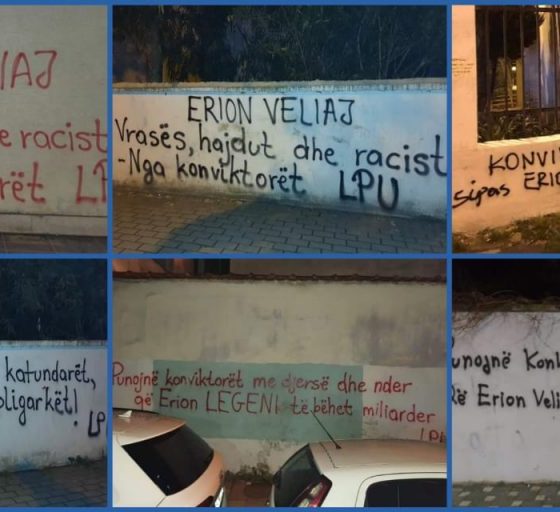 IAJ
e racist
rët LP
ERION VELIAJ
Vrasës, hajdut dhe racist
-Nga konviktorët LPU
KONVI
sipas ERIO
katundarët,
oligarkët!
LP
Punojnë konviktorët me djersë dhe nder
që Erion LEGENI të bëhet miliarder
LPU
unojnë Konv
ë Erion Veli